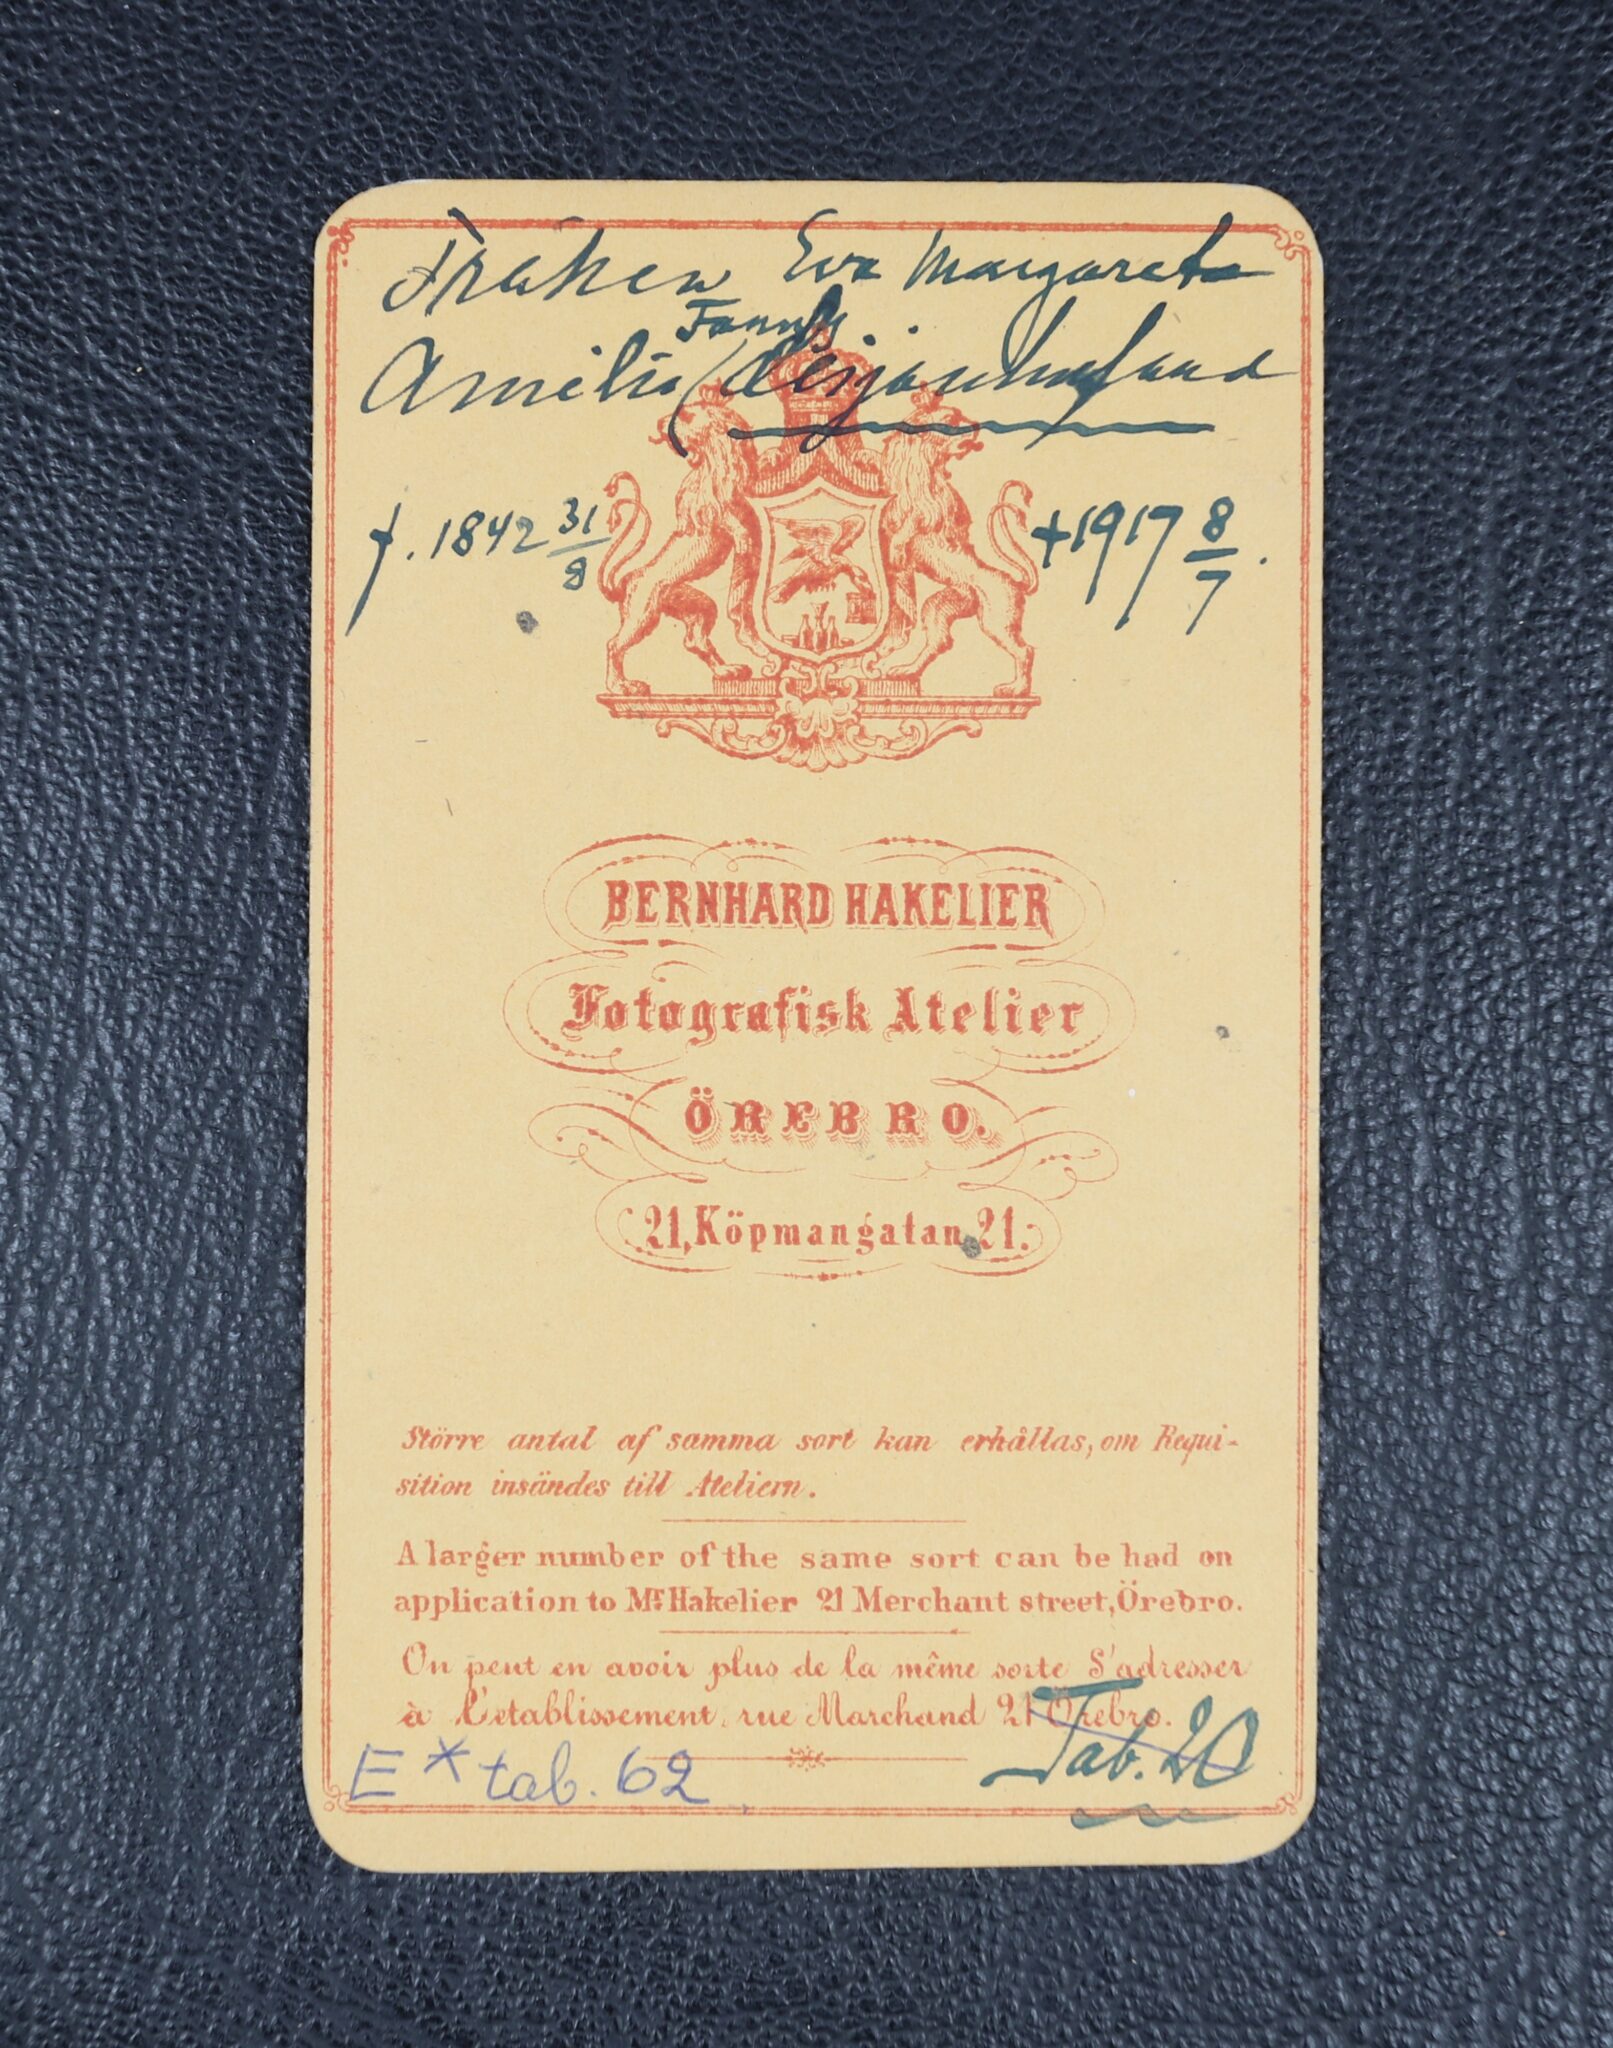 Fröken Eva Margareta
Fanny
Amelia
f. 1842 31/8 +1917 8/7.
BERNHARD HAKELIER
Fotografisk Atelier
ÖREBRO.
21, Köpmangatan 21.
Större antal af samma sort kan erhållas, om Requi-
sition insändes till Ateliern.
A larger number of the same sort can be had on
application to Mr Hakelier 21 Merchant street, Örebro.
On peut en avoir plus de la même sorte S'adresser
à L'etablissement, rue Marchand 21 Örebro.
E* tab. 62
Tab. 20